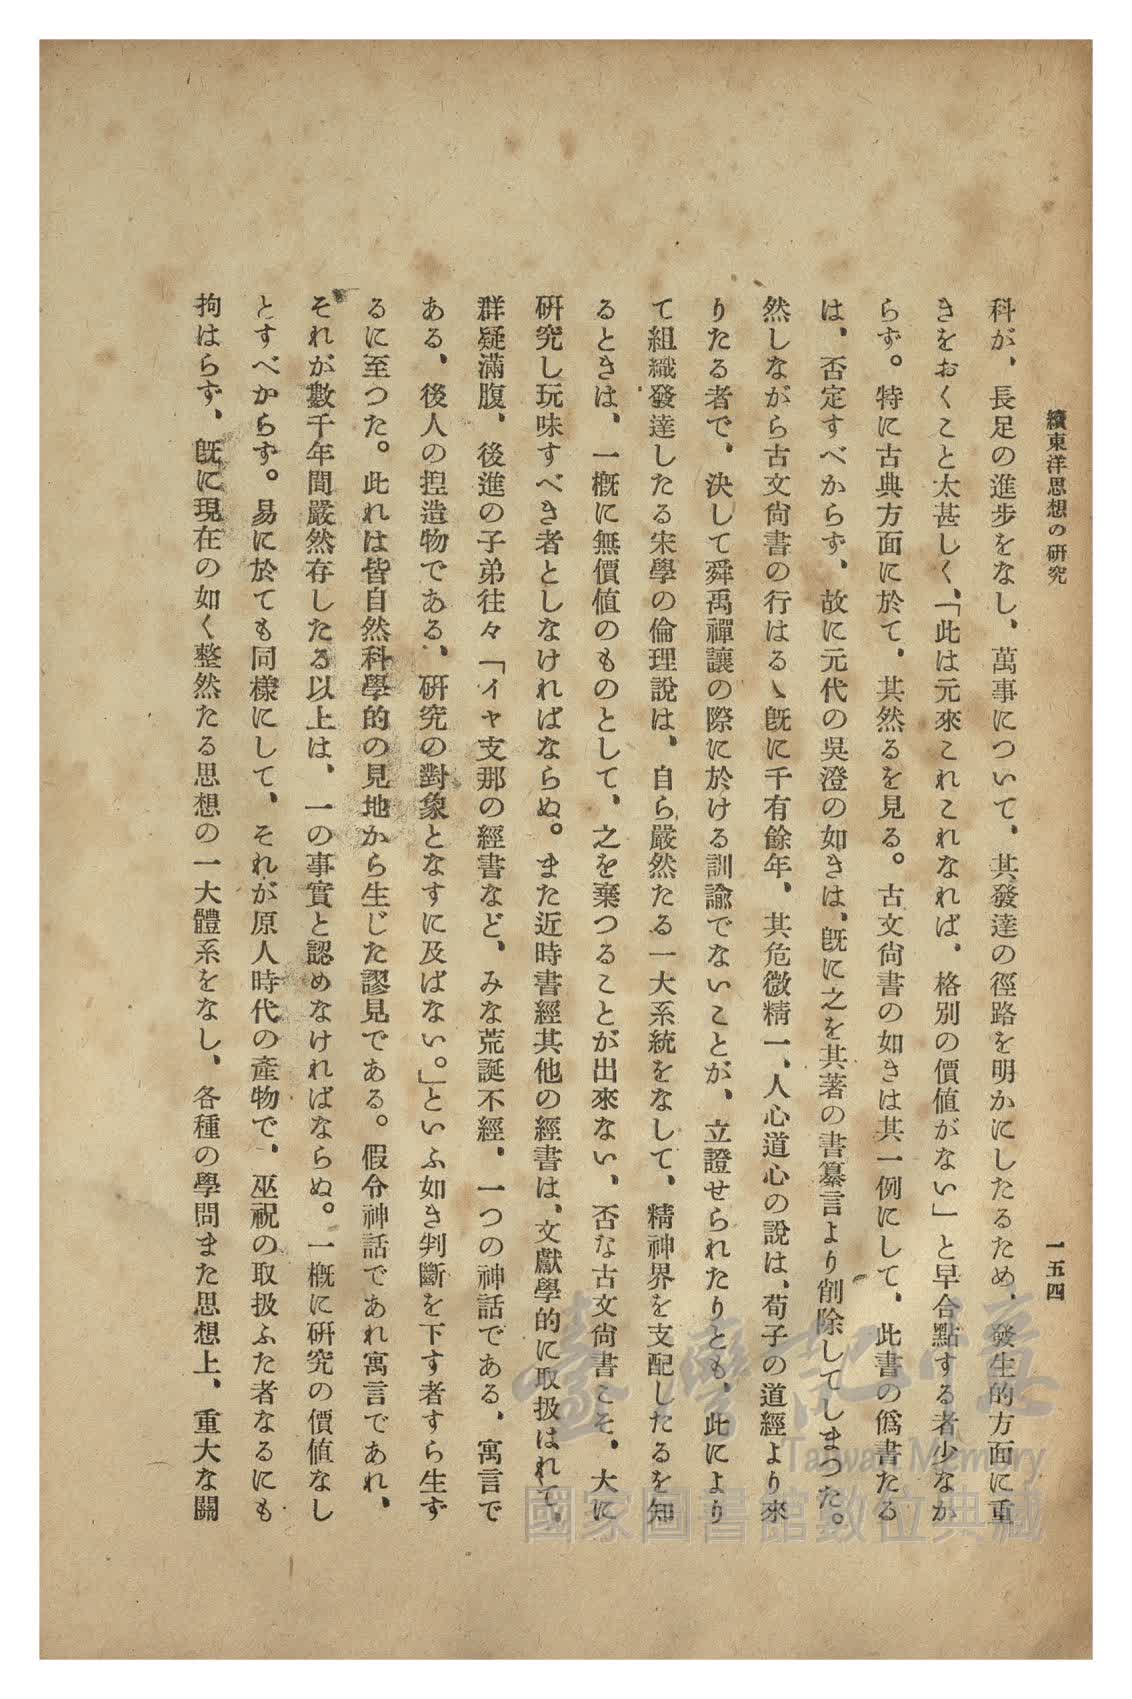 續東洋思想の研究
一五四
科が、長足の進步をなし、萬事について、其發達の徑路を明かにしたるため、發生的方面に重
きをおくこと太甚しく、「此は元來これこれなれば、格別の價値がない」と早合點する者少なか
らず。特に古典方面に於て、其然るを見る。古文尙書の如きは其一例にして、此書の僞書たる
は、否定すべからず、故に元代の吳澄の如きは、旣に之を其著の書纂言より削除してしまつた。
然しながら古文尙書の行はるゝ旣に千有餘年、其危微精一、人心道心の說は、荀子の道經より來
りたる者で、決して舜禹禪讓の際に於ける訓諭でないことが、立證せられたりとも、此により
て組織發達したる宋學の倫理說は、自ら嚴然たる一大系統をなして、精神界を支配したるを知
るときは、一槪に無價値のものとして、之を棄つることが出來ない、否な古文尙書こそ、大に
硏究し玩味すべき者としなければならぬ。また近時書經其他の經書は、文獻學的に取扱はれて、
群疑滿腹、後進の子弟往々「イヤ支那の經書など、みな荒誕不經、一つの神話である、寓言で
ある、後人の捏造物である、硏究の對象となすに及ばない。」といふ如き判斷を下す者すら生ず
るに至つた。此れは皆自然科學的の見地から生じた謬見である。假令神話であれ寓言であれ、
それが數千年間嚴然存したる以上は、一の事實と認めなければならぬ。一槪に硏究の價値なし
とすべからず。易に於ても同樣にして、それが原人時代の產物で、巫祝の取扱ふた者なるにも
拘はらず、旣に現在の如く整然たる思想の一大體系をなし、各種の學問また思想上、重大な關
臺灣記憶
Taiwan Memory
國家圖書館數位典藏